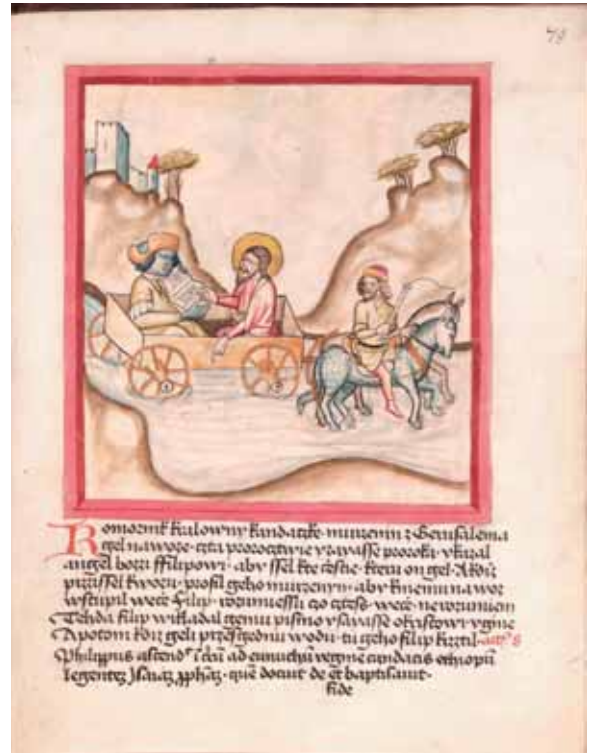 79
Komornik kralowny kandacke murzenin z Geruzalema
gel nawoze czta prorocztwie yzayasse proroka ykazal
angel bozi ffilipowi aby ssel kte cestie kteru on gel Akdiz
przissel kwozu prosil geho murzenyn aby knemu nawoz
wstupil wece Filip rozumiessli czo cztess wece nerozumiem
Tehda filip wikladal gemu pismo ysayasse okristowi
A potom kdiz geli przes gednu wodu tu geho filip krztil
Philippus ascend' ad eunuchū regine candacis ethiopū
legentez Isaiaz ꝓphāz quē docuit de et baptisauit
fide